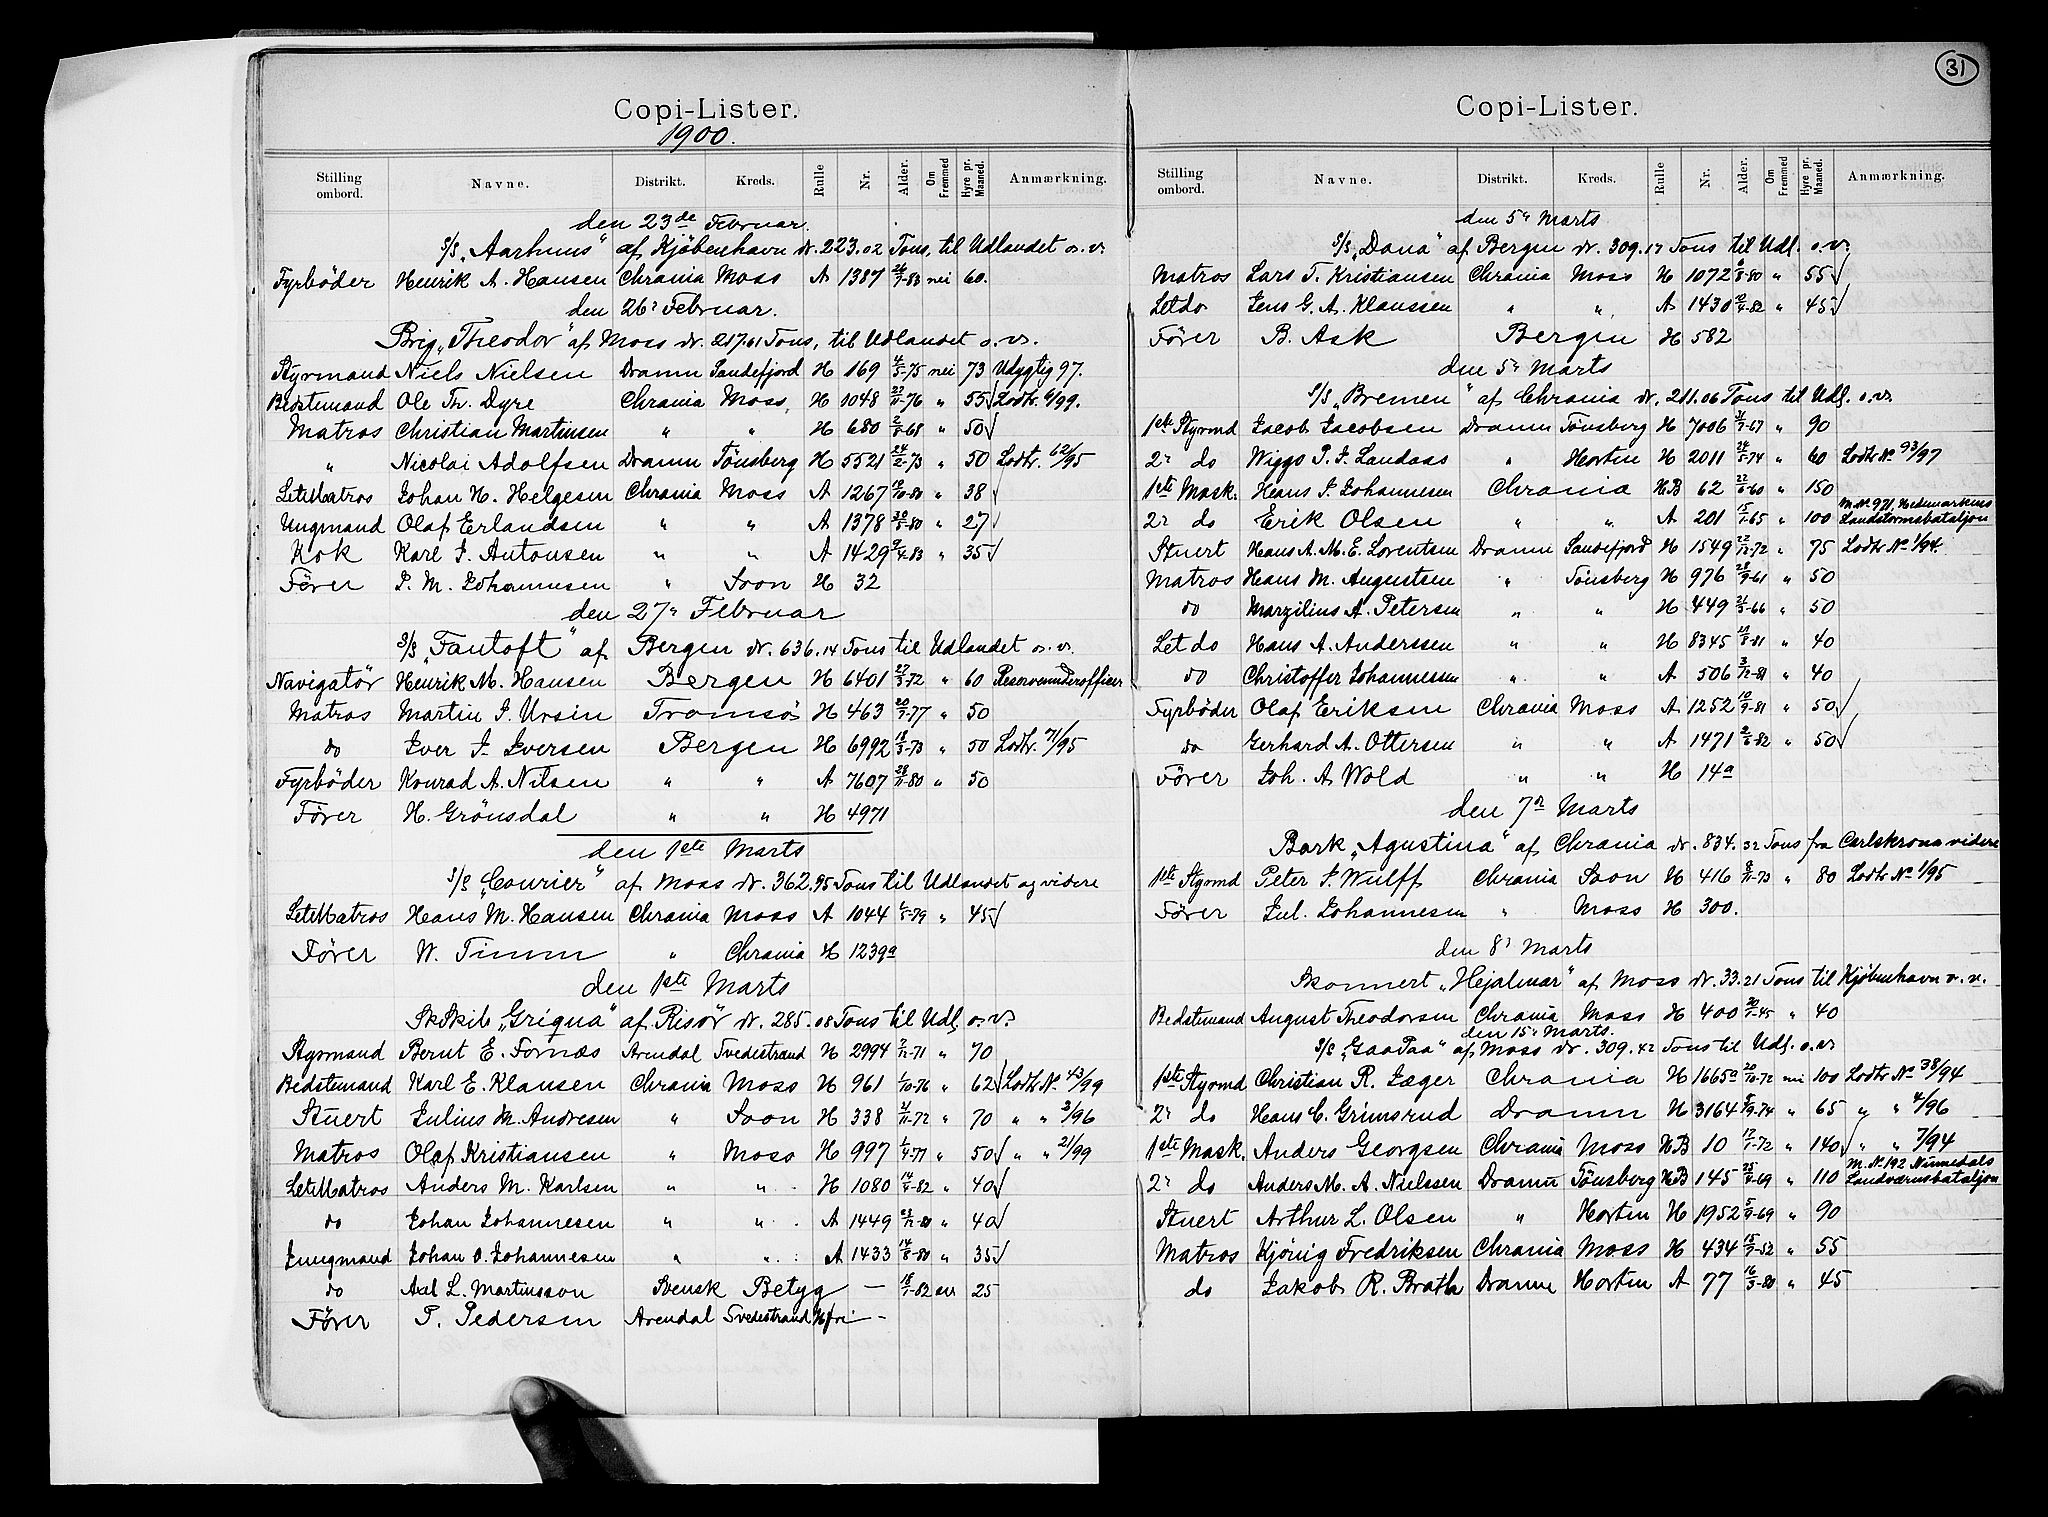 Copi-Lister.
1900.
Stilling ombord. Navne. Distrikt. Kreds. Rulle Nr. Alder. Om Fremmed Hyre pr. Maaned. Anmærkning.
den 23de Februar.
S/S „Aarhuus" af Kjöbenhavn dr. 223.02 Tons, til Udlandet o. v.
Fyrböder Henrik A. Hansen Chrania Moss A 1387 nei 60.
den 26' Februar.
Brig „Theodor" af Moss dr. 217.61 Tons, til Udlandet o. v.
Styrmand Niels Nielsen Dramn Sandefjord H 169 4/5-75 nei 73 Udygtig 97.
Bedstemand Ole Th. Dyre Chrania Moss, H 1048 22/11-76 " 55 Lodtr. 6/99.
Matros Christian Martinsen " " H 680 " 50
" Nicolai Adolfsen Dramn Tönsberg H 5521 24/2-73 " 50 Lodtr. 62/95
LetMatros Johan H. Helgesen Chrania Moss A 1267 18/10-80 " 38
Ungmand Olaf Erlandsen " " A 1378 " 27
Kok Karl J. Antonsen " " A 1429 9/4-83 " 35
Förer J. M. Johannesen " Soon H 32
den 27' Februar
S/S „Fantoft" af Bergen dr. 636.14 Tons til Udlandet o. v.
Navigatör Henrik M. Hansen Bergen H 6401 27/3-72 " 60 Reserveunderofficer
Matros Martin J. Ursin Tromsö H 463 " 50
do Iver J. Iversen Bergen H 6992 18/3-73 " 50 Lodtr. 71/95
Fyrböder Konrad A. Nilsen " " A 7607 28/11-80 " 50
Förer H. Grönsdal " " H 4971
den 1ste Marts
S/S „Courier" af Moss dr. 362.95 Tons til Udlandet og videre
LetMatros Hans M. Hansen Chrania Moss A 1044 " 45
Förer W. Timm " Chrania H 1239a
den 1ste Marts
SkSkib „Griqua" af Risör dr. 285.08 Tons til Udl. o. v.
Styrmand Bernt E. Fornæs Arendal Tvedestrand H 2994 " 70
Bedstemand Karl E. Klausen Chrania Moss H 961 1/10-76 " 62 Lodtr No. 43/99
Stuert Julius M. Andresen " Soon H 338 21/11-72 " 70 " " 3/96
Matros Olaf Kristiansen " Moss H 997 " 50 " " 21/99
LetMatros Anders M. Karlsen " " H 1080 " 40
do Johan Johannesen " " A 1449 " 40
Jungmand Johan O. Johannesen " " A 1433 14/8-80 " 35
do Axl L. Martinsson Svensk Betyg — 18/1-82 en 25
Förer T. Pedersen Arendal Tvedestrand Hfri —
31
Copi-Lister.
Stilling ombord. Navne. Distrikt. Kreds. Rulle Nr. Alder. Om Fremmed Hyre pr. Maaned. Anmærkning.
den 5' Marts
S/S „Dana" af Bergen dr. 309.17 Tons til Udl. o. v.
Matros Lars T. Kristiansen Chrania Moss H 1072 " 55
Letdo Jens G. A. Klaussen " " A 1430 " 45
Förer B. Ask Bergen H 582
den 5' Marts
S/S „Bremen" af Chrania dr. 211.06 Tons til Udl. o. v.
1ste Styrmd Jacob Jacobsen Dramn Tönsberg H 7006 " 90
2' do Wiggo P. J. Landaas " Horten H 2011 24/5-74 " 60 Lodtr No. 93/97
1ste Mask. Hans J. Johannesen Chrania HB 62 " 150
2' do Erik Olsen " " A 201 15/1-65 " 100 M. No. 971, Hedemarkens Landstormsbataljon
Stuert Hans A. M. E. Lorentsen Dramn Sandefjord H 1549 22/12-72 " 75 Lodtr No. 1/94.
Matros Hans M. Augustsen " Tönsberg H 976 28/9-61 " 50
do Marzilius A. Petersen " " H 449 21/3-66 " 50
Let do Hans A. Anderssen " " H 8345 " 40
do Christoffer Johannessen " " A 506 3/12-81 " 40
Fyrböder Olaf Eriksen Chrania Moss A 1252 10/9-81 " 50
do Gerhard A. Ottersen " " A 1471 " 50
Förer Joh. A Wold " " H 14a
den 7de Marts
Bark „Agustina" af Chrania dr. 834.32 Tons fra Carlskrona videre
1ste Styrmd Peter J. Wulff Chrania Soon H 416 " 80 Lodtr No. 1/95
Förer Jul. Johannesen " Moss H 300.
den 8' Marts
Skonnert „Hejalmar" af Moss dr. 33.21 Tons til Kjöbenhavn o. v.
Bedstemand August Theodorsen Chrania Moss H 400 " 40
den 15' Marts.
S/S „GaaPaa" af Moss dr. 309.42 Tons til Udl. o. v
1ste Styrmd Christian R. Jæger Chrania H 1665a 20/10-72 nei 100 Lodtr No. 38/94
2' do Hans C. Grimsrud Dramn H 3164 " 65 " " 4/96
1ste Mask. Anders Georgsen Chrania Moss HB 10 17/1-72 " 140 " " 7/94
2' do Anders M. A. Nielssen Dramn Tönsberg HB 145 " 110 M. No. 192 Numedals Landværnsbataljon
Stuert Arthur L. Olsen " Horten H 1952 5/9-69 " 90
Matros Kjönig Fredriksen Chrania Moss H 434 " 55
do Jakob R. Brath Dramn Horten A 77 16/3-80 " 45